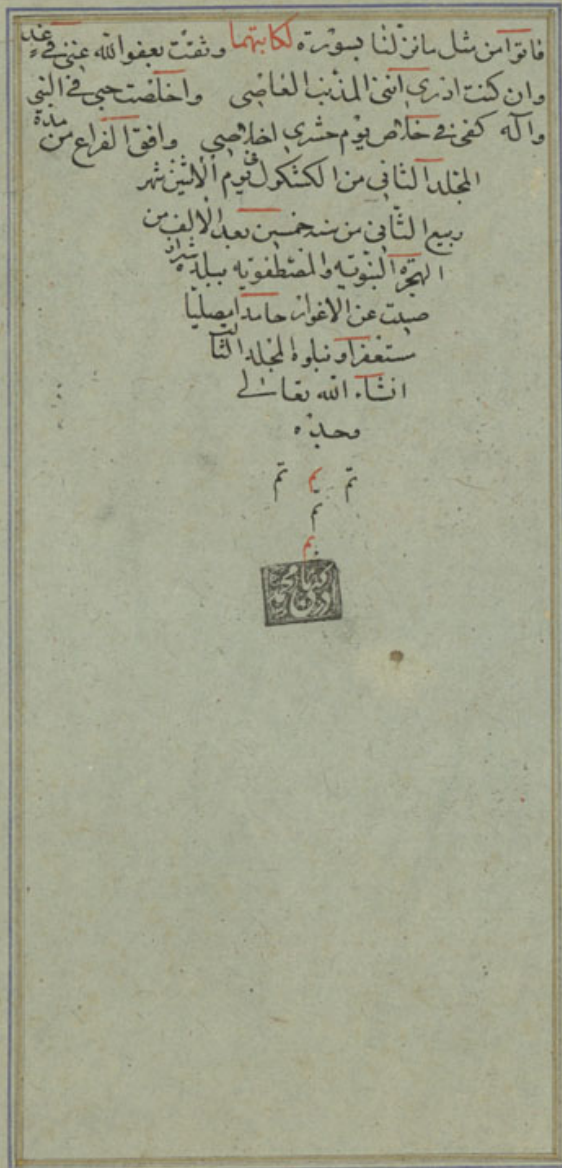 فاتوا من مثل ما نزلنا بسورة لكاتبها وثقت بعفو الله عني في غد
وان كنت ادري انني المذنب العاصي واخلصت حبي في النبي
واله كفى في خلاص يوم حشري اخلاصي وافق الفراغ من مدة
المجلد الثاني من الكشكول في يوم الاثنين شهر
ربيع الثاني من سنه خمسين بعد الالف من
الهجرة النبوية والمصطفويه ببلده شيراز
صينت عن الاغواز حامدا مصليا
مستغفرا ويتلوه المجلد الثالث
انشاء الله تعالى
وحده
تم تم تم
تم
تم